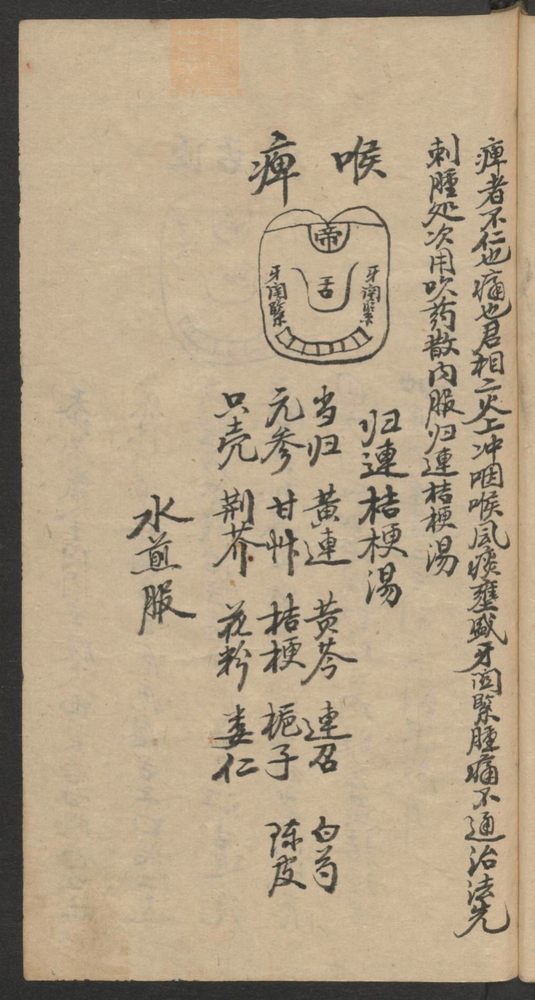 痺者不仁也痛也君相二火上冲咽喉风痰壅盛牙関緊腫痛不通治法先
刺腫处次用吹药散内服归連桔梗湯
喉痺
帝
舌
牙関緊
牙関緊
归連桔梗湯
当归 黄連 黄芩 連召 白芍
元参 甘艸 桔梗 梔子 陈皮
只壳 荆芥 花粉 蒌仁
水煎服